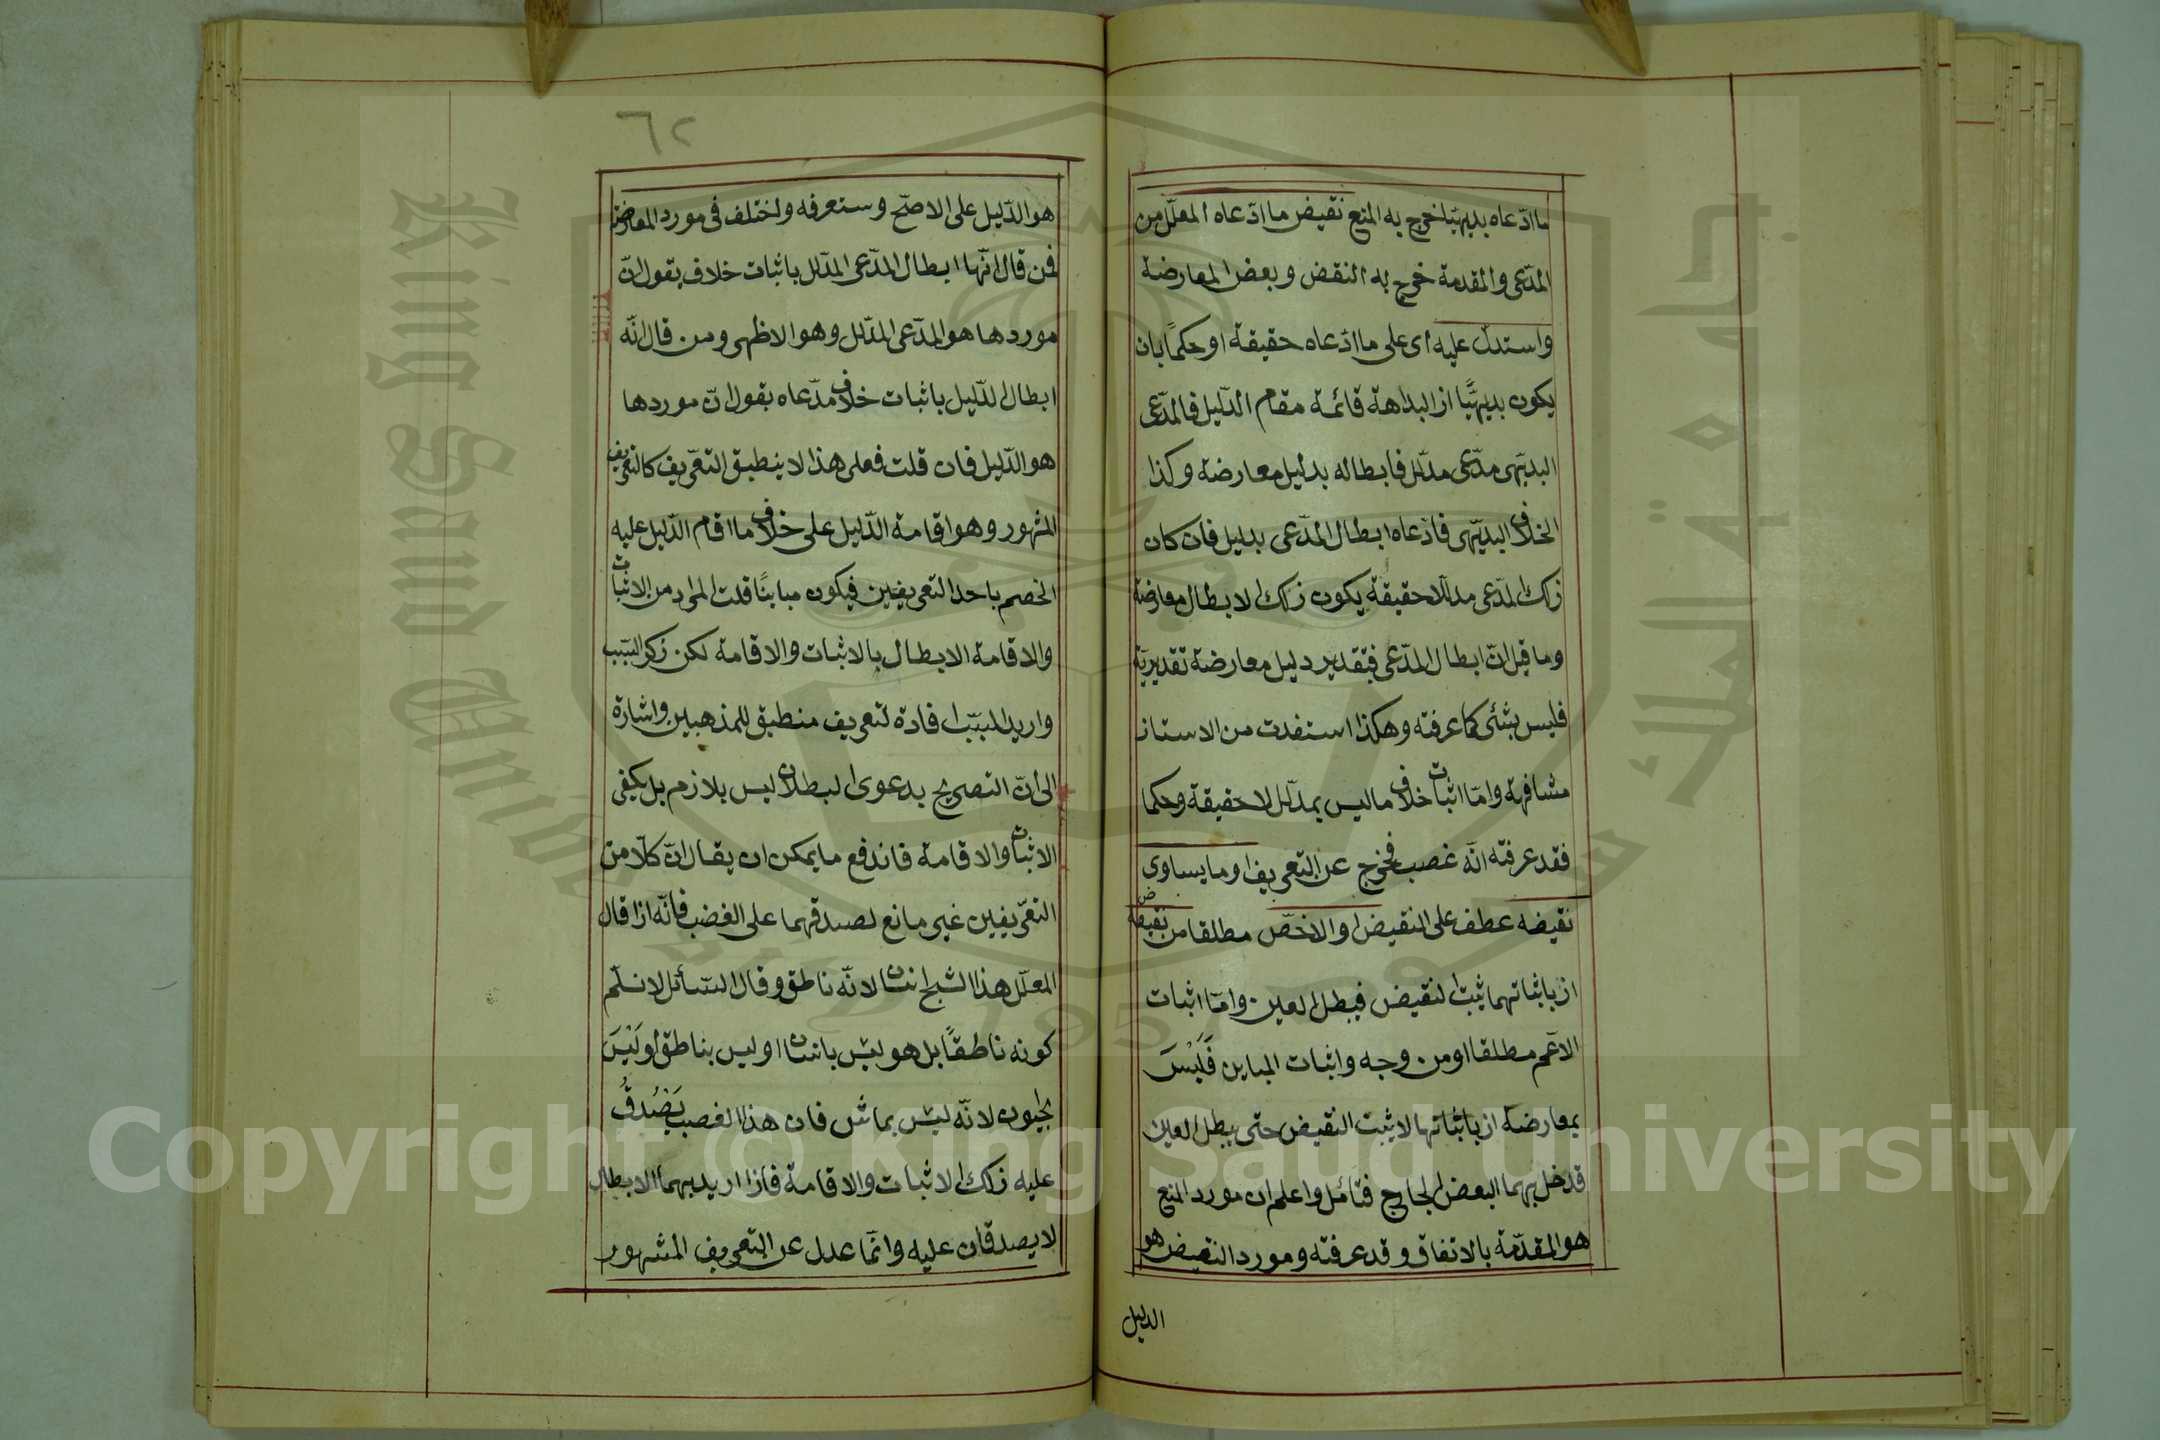 ما ادّعاه بديهيّا خرج به المنع نقيض ما ادّعاه المعلّل من
المدّعى والمقدمة خرج به النقض وبعض المعارضة
واستدلّ عليه اى على ما ادّعاه حقيقة او حكمًا بان
يكون بديهيًّا اذ البداهة قائمة مقام الدّليل فالمدّعى
البديّهى مدّعى مدلّل فابطاله بدليل معارضة وكذا
الخلاف البديّهى فادّعاه ابطال المدّعى بدليل فان كان
ذلك المدّعى مدلّلا حقيقة يكون ذلك الابطال معارضة
وما قيل انّ ابطال المدّعى فبتقدير دليل معارضة تقديريّة
فليس بشئى كما عرفته وهكذا استفدت من الاستاذ
مشافهة وامّا اثبات خلاف ما ليس بمدلّل لا حقيقة وحكما
فقد عرفته انّه غصب فخرج عن التعريف او ما يساوى
نقيضه عطف على النقيض او الاخصّ مطلقا من نقيضه
اذ باثباتهما يثبت النقيض فيبطل العين وامّا اثبات
الاعّم مطلقا او من وجه واثبات المباين فَلَيْسَ
بمعارضة اذ باثباتها لا يثبت النقيض حتى يبطل العين
قد خل بهما البعض الخارج فتأمّل واعلم ان مورد المنع
هو المقدّمة بالاتفاق وقد عرفته ومورد النقيض هو
الدليل
٦٢
هو الدّليل على الاصحّ وستعرفه واختلف فى مورد المعارضة
فمن قال انّها ابطال المدّعى المدّلل باثبات خلاف يقول انّ
موردها هو المدّعى المدّلل وهو الاظهر ومن قال انّه
ابطال الدّليل باثبات خلاف مدّعاه يقول انّ موردها
هو الدّليل فان قلت فعلى هذا لا ينطبق التعّريف كالتعّريف
المشهور وهو اقامة الدّليل على خلاف ما اقام الدّليل عليه
الخصم باحد التعريفين فيكون مباينًا قلت المراد من الاثبات
والاقامة الابطال بالاثبات والاقامة لكن ذكر السّبب
واريد المسبّب افادة لتعريف منطبق للمذهبين واشارة
الى انّ التصريح بدعوى البطلان ليس بلازم بل يكفى
الاثبات والاقامة فاندفع ما يمكن ان يقال انّ كلّا من
التعّريفين غير مانع لصدقهما على الغضب فانّه اذا قال
المعلّل هذا الشبح انسان لانّه ناطق وقال السّائل لا نسلّم
كونه ناطقًا بل هو ليس بانسان او ليس بناطق او لَيْسَ
بحيوان لانّه ليس بماش فان هذا الغصب يَصْدقُ
عليه ذلك الاثبات والاقامة فاذا اريد بهما الابطال
لا يصدقان عليه وانّما عدل عن التعريف المشهور
Copyright © King Saud University
King Saud University
جامعة الملك سعود
1957